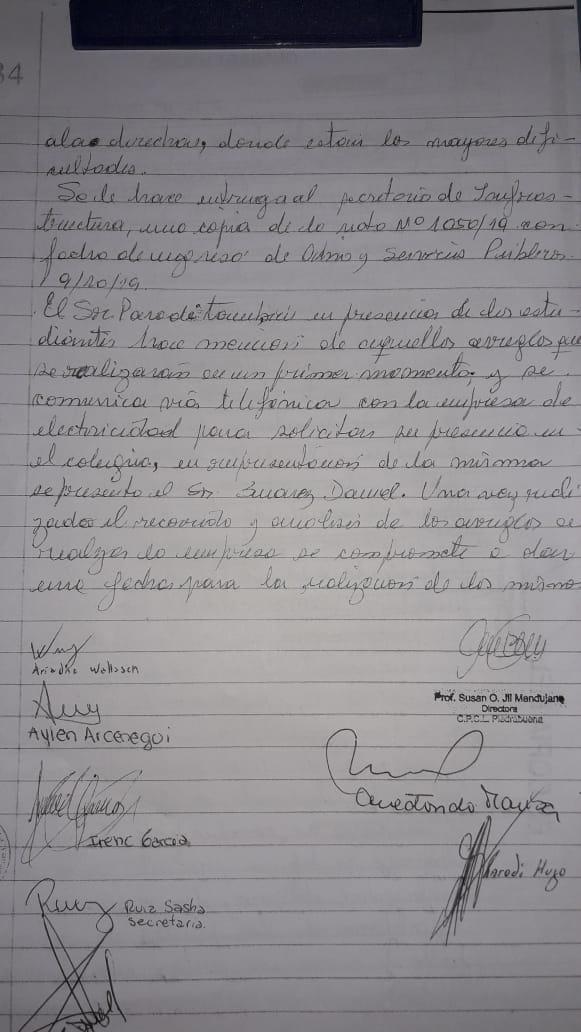 34
alas derechas, donde estan los mayores difi-
cultades.
Se le hace entrega al secretario de Infraes-
tructura, una copia de la nota Nº 1050/19 con
fecha de ingreso de Obras y Servicios Publicos
9/10/19.
El Sr. Parodi tambien en presencia de los estu-
diantes hace mencion de aquellos arreglos que
se realizaran en un primer momento, y se
comunica via telefonica con la empresa de
electricidad para solicitar su presencia en
el colegio, en representacion de la misma
se presento el Sr. Suarez Daniel. Una vez reali-
zados el recorrido y analisis de los arreglos a
realizar la empresa se compromete a dar
una fecha para la realizacion de los mismo
Ariadna
Prof. Susan O. Jil Mandujano
Directora
C.P.C.L. Piedrabuena
Aylen Arceregui
Irene Garcia
Parodi Hugo
Ruiz Sasha
Secretaria.